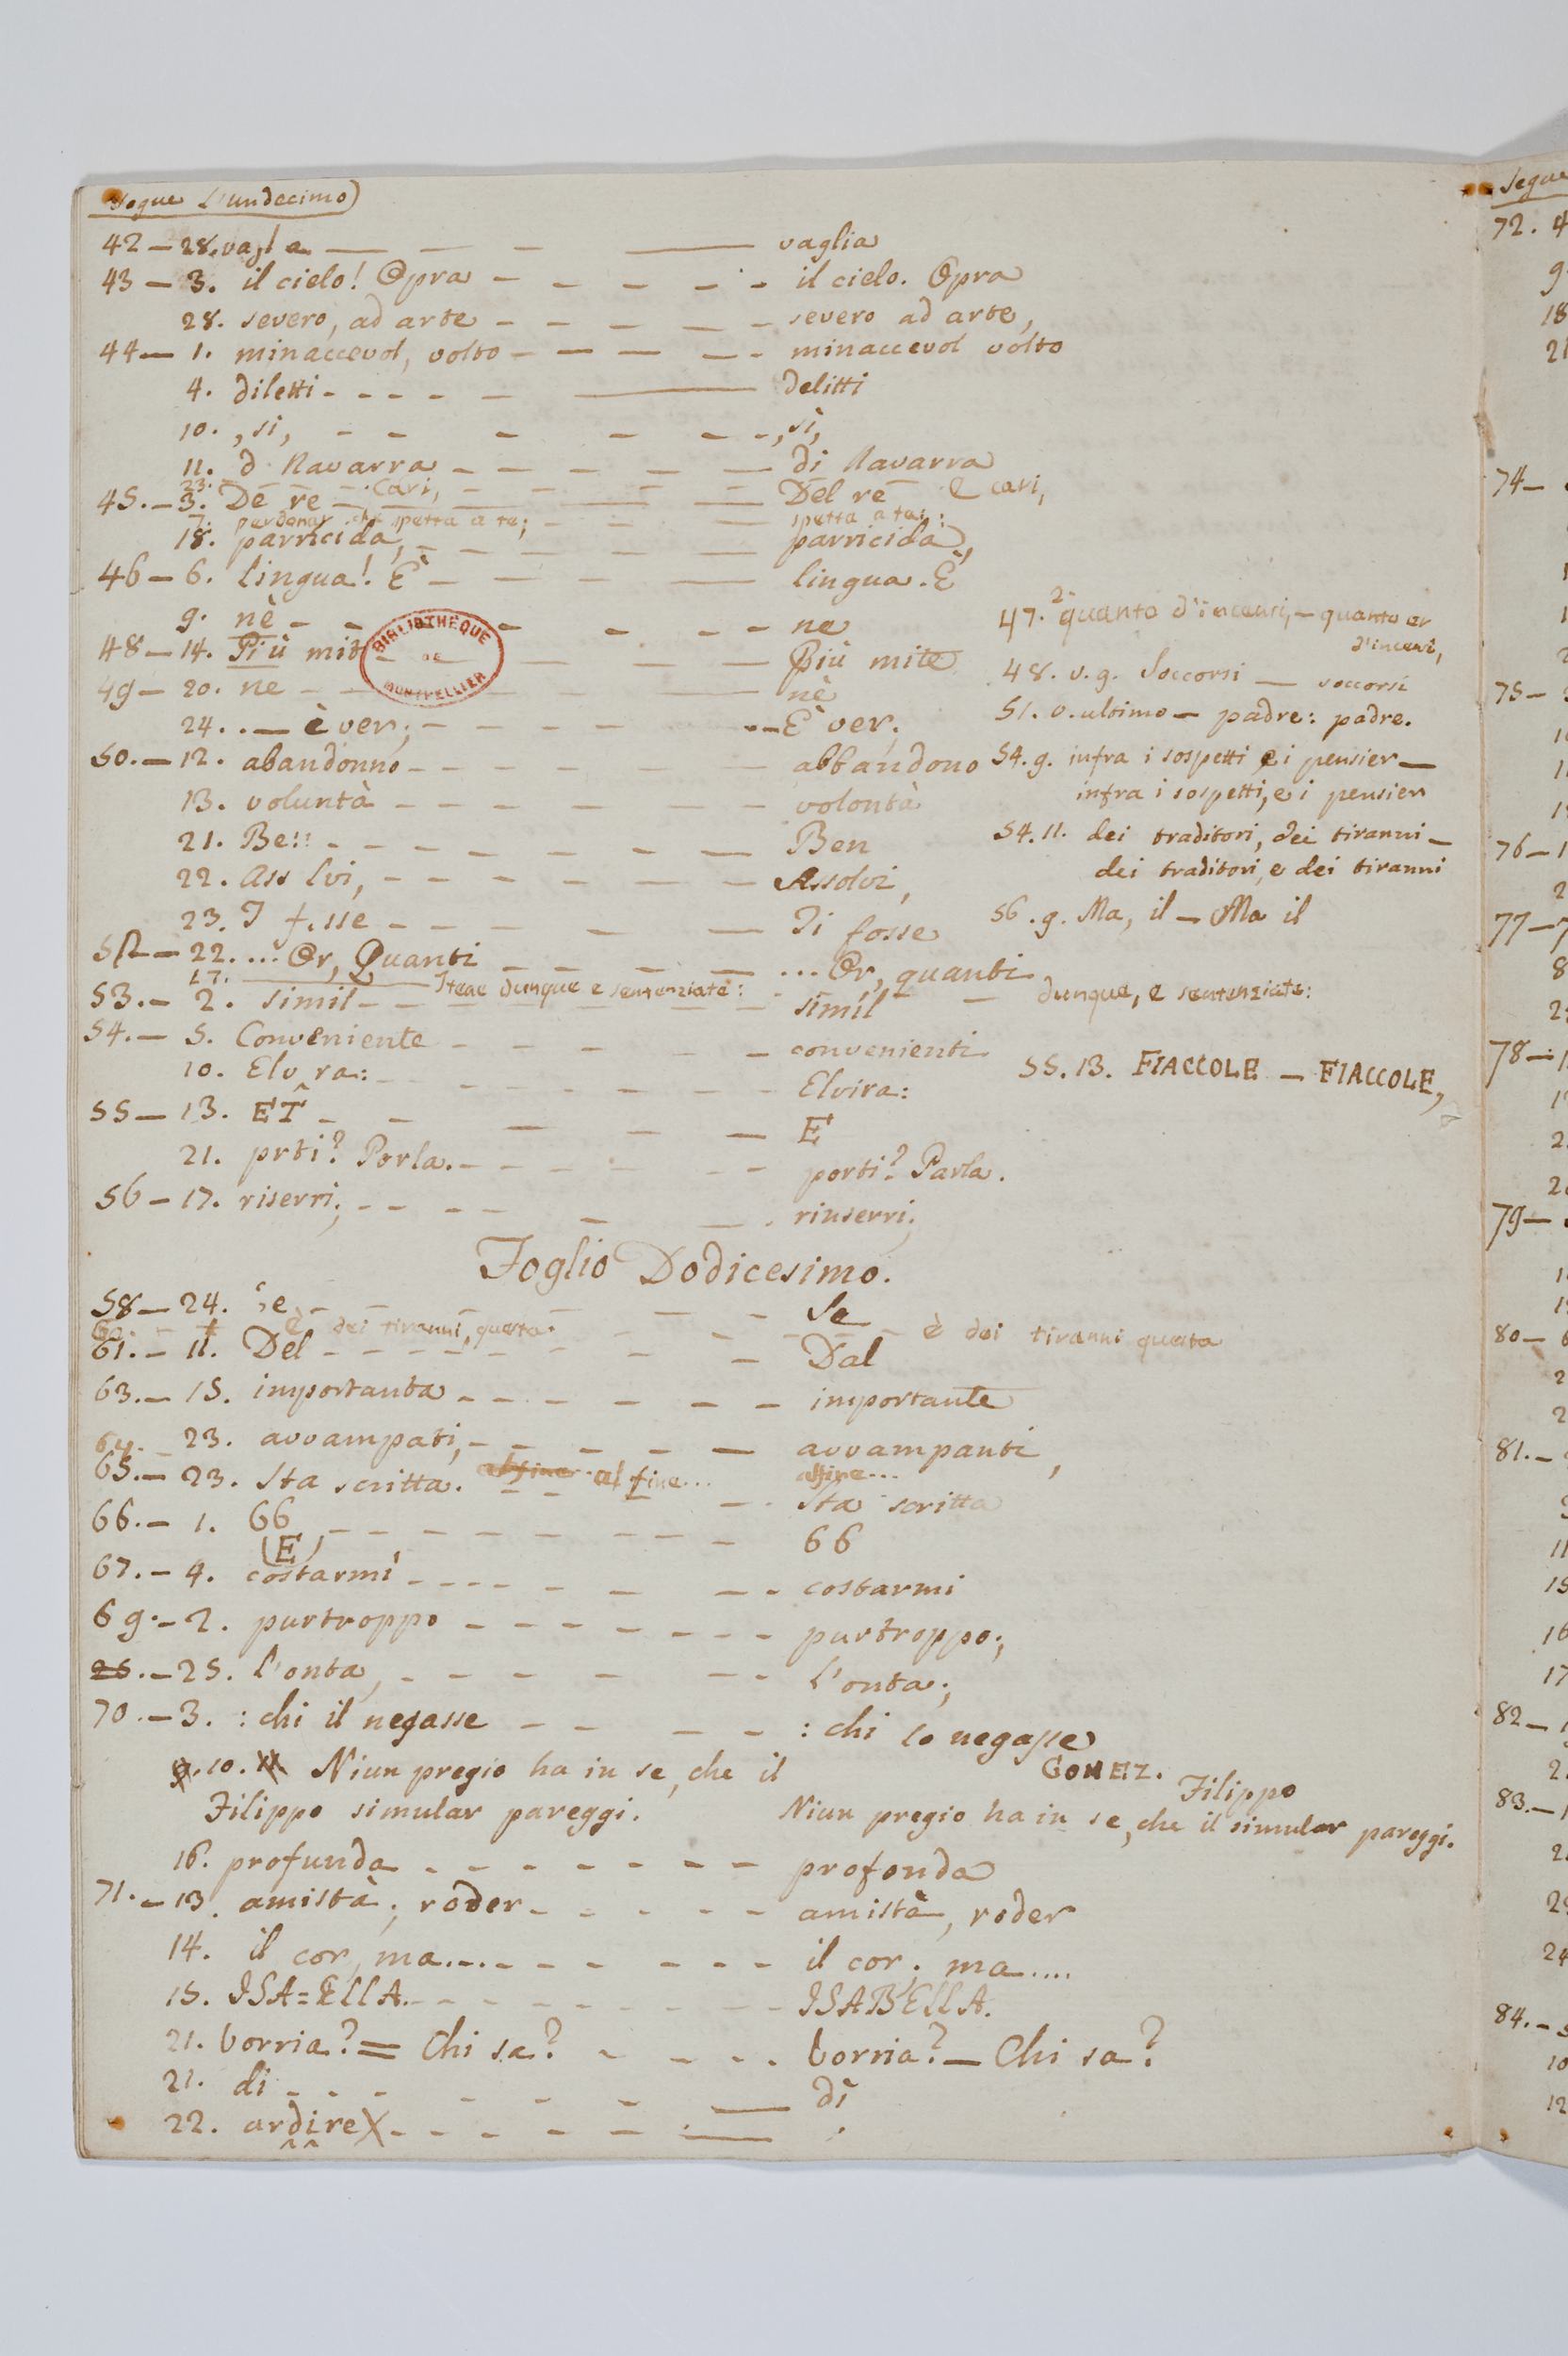 Segue L'undecimo)
42 — 28. vagl a — — — — vaglia
43 — 3. il cielo! Opra - - - - - - il cielo. Opra
28. severo, ad arte - - - - - - severo ad arte,
44 — 1. minaccevol, volto - - - - - minaccevol volto
4. diletti - - - - - — delitti
10. , si, - - - - - - , sì,
11. d Navarra - - - - - - di Navarra
23. - - - Cari, - - - - - E cari,
45. — 3. De re - - - - - Del re
7. perdonar che spetta a te; - - - spetta a te:
18. parricida, - - - - - - parricida,
46 — 6. lingua! È - - - - - lingua. È
9. nè - - - - - - ne
BIBLIOTHEQUE DE MONTPELLIER
48 — 14. Più mit - - - - - Più mite
49 — 20. ne - - - - nè
24. . — è ver; - - - - - .. — È ver;
50. — 12. abandonno - - - - - abbandono
13. voluntà - - - - - - volontà
21. Be!! - - - - - - - Ben
22. Ass lvi, - - - - - - Assolvi,
23. T f. sse - - - - - Ti fosse
52 — 22. ... Or, Quanti - - - - ... Or, quanti
27. — Itene dunque e sentenziate: - — dunque, e sentenziate:
53. — 2. simil - - - - - - simìl
54. — 5. Conveniente - - - - - convenienti
10. Elv ra: - - - - - - - Elvira:
55 — 13. ET - - - - - E
21. prti? Porla. - - - - - - porti? Parla.
56 — 17. riserri; - - - - - - - rinserri;
47. 2. quanto d'incauti, — quanto
48. v. 9. Soccorsi — soccorsi
51. v. ultimo — padre: padre.
54. 9. infra i sospetti e i pensier —
infra i sospetti, e i pensier
54. 11. dei traditori, dei tiranni —
dei traditori, e dei tiranni
56. 9. Ma, il — Ma il
55. 13. FIACCOLE — FIACCOLE,
Foglio Dodicesimo.
58 — 24. Se - - - - - Se
60. - - È dei tiranni, questa. - - - - è dei tiranni questa
61. — 11. Del - - - - - - - Dal
63. — 15. importanta - - - - - - - importante
64. — 23. avvampati, - - - - - avvampanti,
al fine... alfine...
65. — 23. Sta scritta. - - - - - Sta scritta
66. — 1. 66 - - - - - - - - 66
(E)
67. — 4. costarmi - - - - - - - - costarmi
69. — 2. purtroppo - - - - - - - purtroppo;
25. — 25. l'onta, - - - - - - l'onta;
70. — 3. : chi il negasse - - - - : chi lo negasse
9. 10. 11. Niun pregio ha in se, che il GOMEZ.
Filippo
Filippo simular pareggi. Niun pregio ha in se, che il simular pareggi.
16. profunda - - - - - - - profonda
71. — 13. amistà; roder - - - - - amistà, roder
14. il cor, ma.... - - - - - - il cor; ma....
15. ISA=ELLA. - - - - - - - - ISABELLA.
21. borria? = Chi sa? - - - - borria? — Chi sa?
21. di - - - - - - — dì
22. ardire X - - - - - — .
Segue
72. 4
9.
18
21
74 —
75 —
76 — 1
77 — 7
8
78 —
79 —
80 — 6
81. —
11
15
16
17
82 —
83. — 1
24
84. — 5
10
12